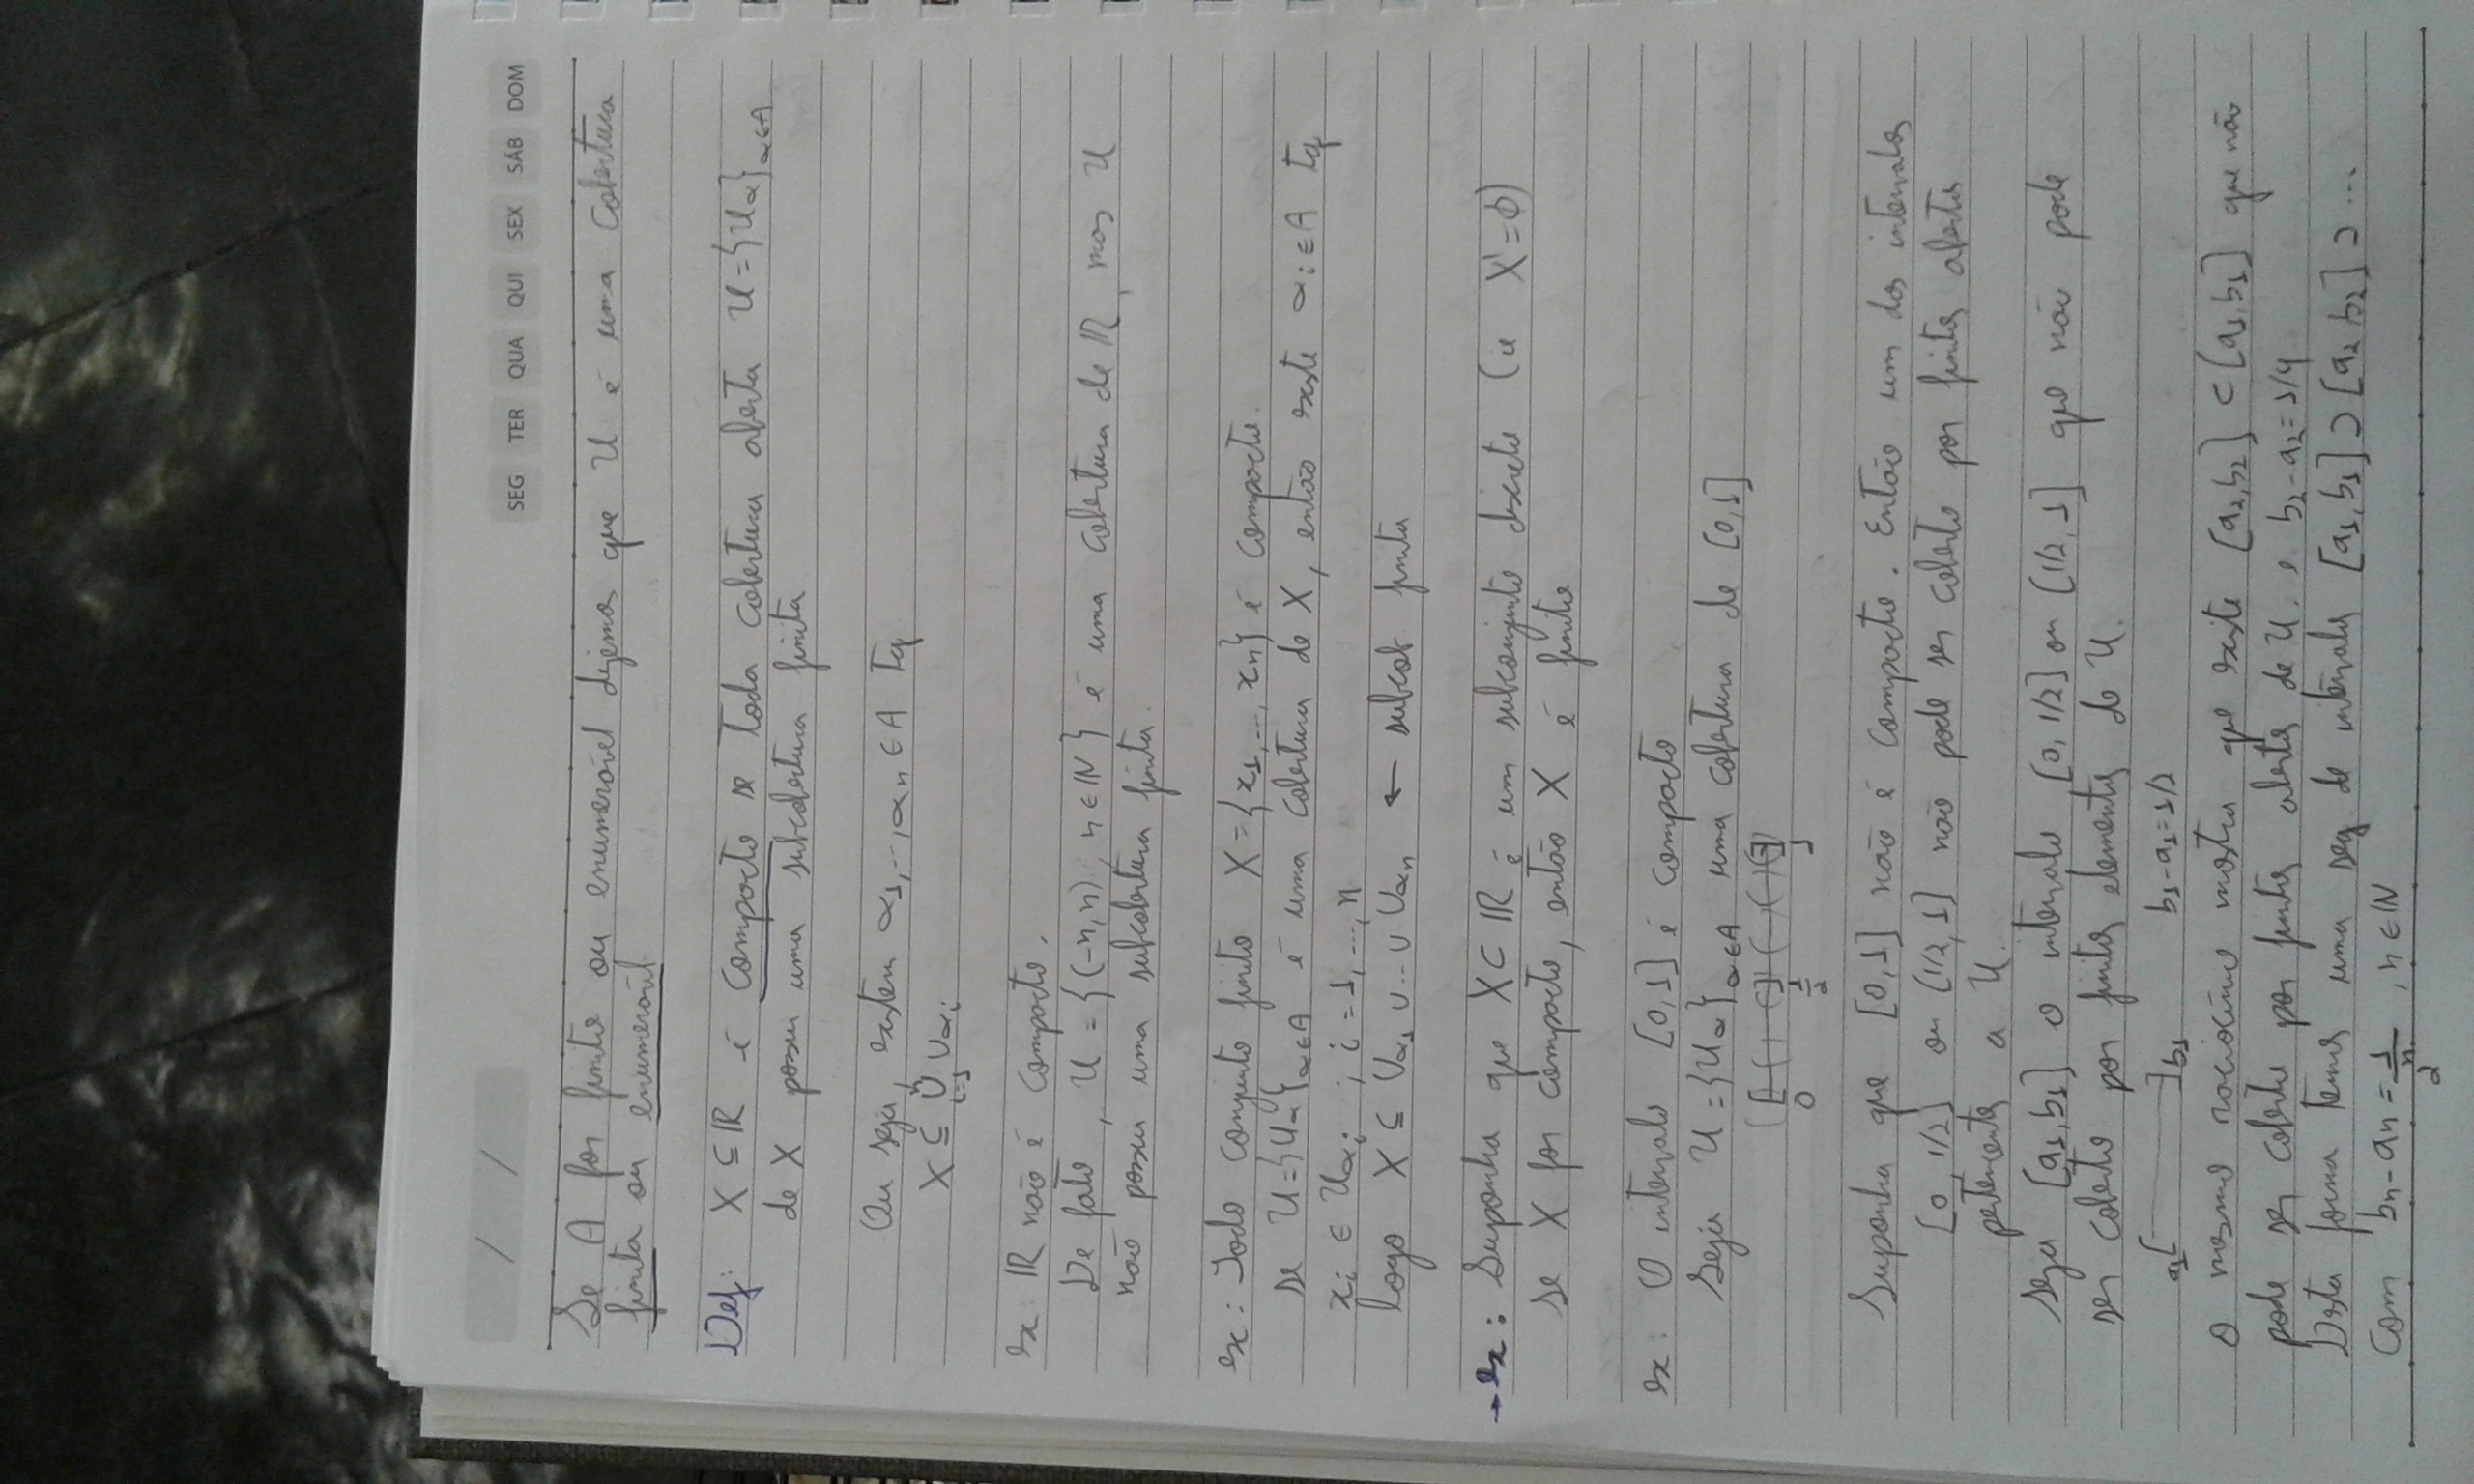 / / SEG TER QUA QUI SEX SÁB DOM
Se A for finito ou enumerável dizemos que U é uma cobertura
finita ou enumerável
Def: X ⊆ ℝ é compacto se toda cobertura aberta U={Uα}α∈A
de X possui uma subcobertura finita
Ou seja, existem α1,...,αn ∈ A tq
X ⊆ ⋃ⁿi=1 Uαi
ex: ℝ não é compacto.
De fato, U = {(-n,n), n∈ℕ} é uma cobertura de ℝ, mas U
não possui uma subcobertura finita.
ex: Todo conjunto finito X={x1,..., xn} é compacto.
se U={Uα}α∈A é uma cobertura de X, então existe αi∈A tq
xi ∈ Uαi ; i=1,...,n
logo X ⊆ Uα1 ∪...∪ Uαn ← subcob finita
→ex: Suponha que X⊂ℝ é um subconjunto discreto (ie X'=∅)
se X for compacto, então X é finito
ex: O intervalo [0,1] é compacto
Seja U={Uα}α∈A uma cobertura de [0,1]
0 1/2 1
Suponha que [0,1] não é compacto. Então um dos intervalos
[0,1/2] ou [1/2,1] não pode ser coberto por finitos abertos
pertencentes a U.
Seja [a1,b1] o intervalo [0,1/2] ou [1/2,1] que não pode
ser coberto por finitos elementos de U.
a1[ ]b1 b1-a1=1/2
O mesmo raciocínio mostra que existe [a2,b2] ⊂ [a1,b1] que não
pode ser coberto por finitos abertos de U. e b2-a2=1/4
Desta forma temos uma seq de intervalos [a1,b1]⊃[a2 b2]⊃...
Com bn-an=1/2ⁿ, n∈ℕ